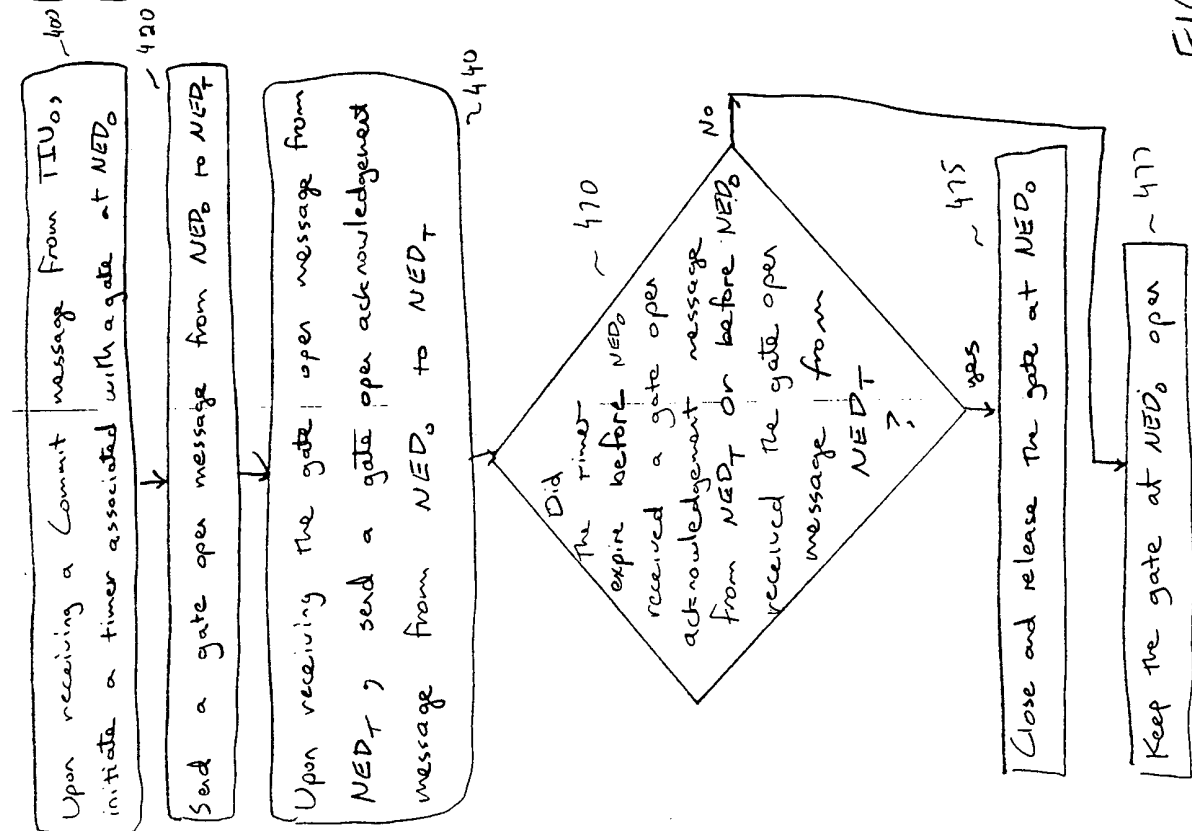 Upon receiving a Commit message from TIU₀,
initiate a timer associated with a gate at NED₀
~400
Send a gate open message from NED₀ to NED_T
~420
Upon receiving the gate open message from
NED_T, send a gate open acknowledgement
message from NED₀ to NED_T
~440
Did
the timer
expire before NED₀
received a gate open
acknowledgement message
from NED_T or before NED₀
received the gate open
message from
NED_T
?
~470
No
yes
Close and release the gate at NED₀
~475
Keep the gate at NED₀ open
~477